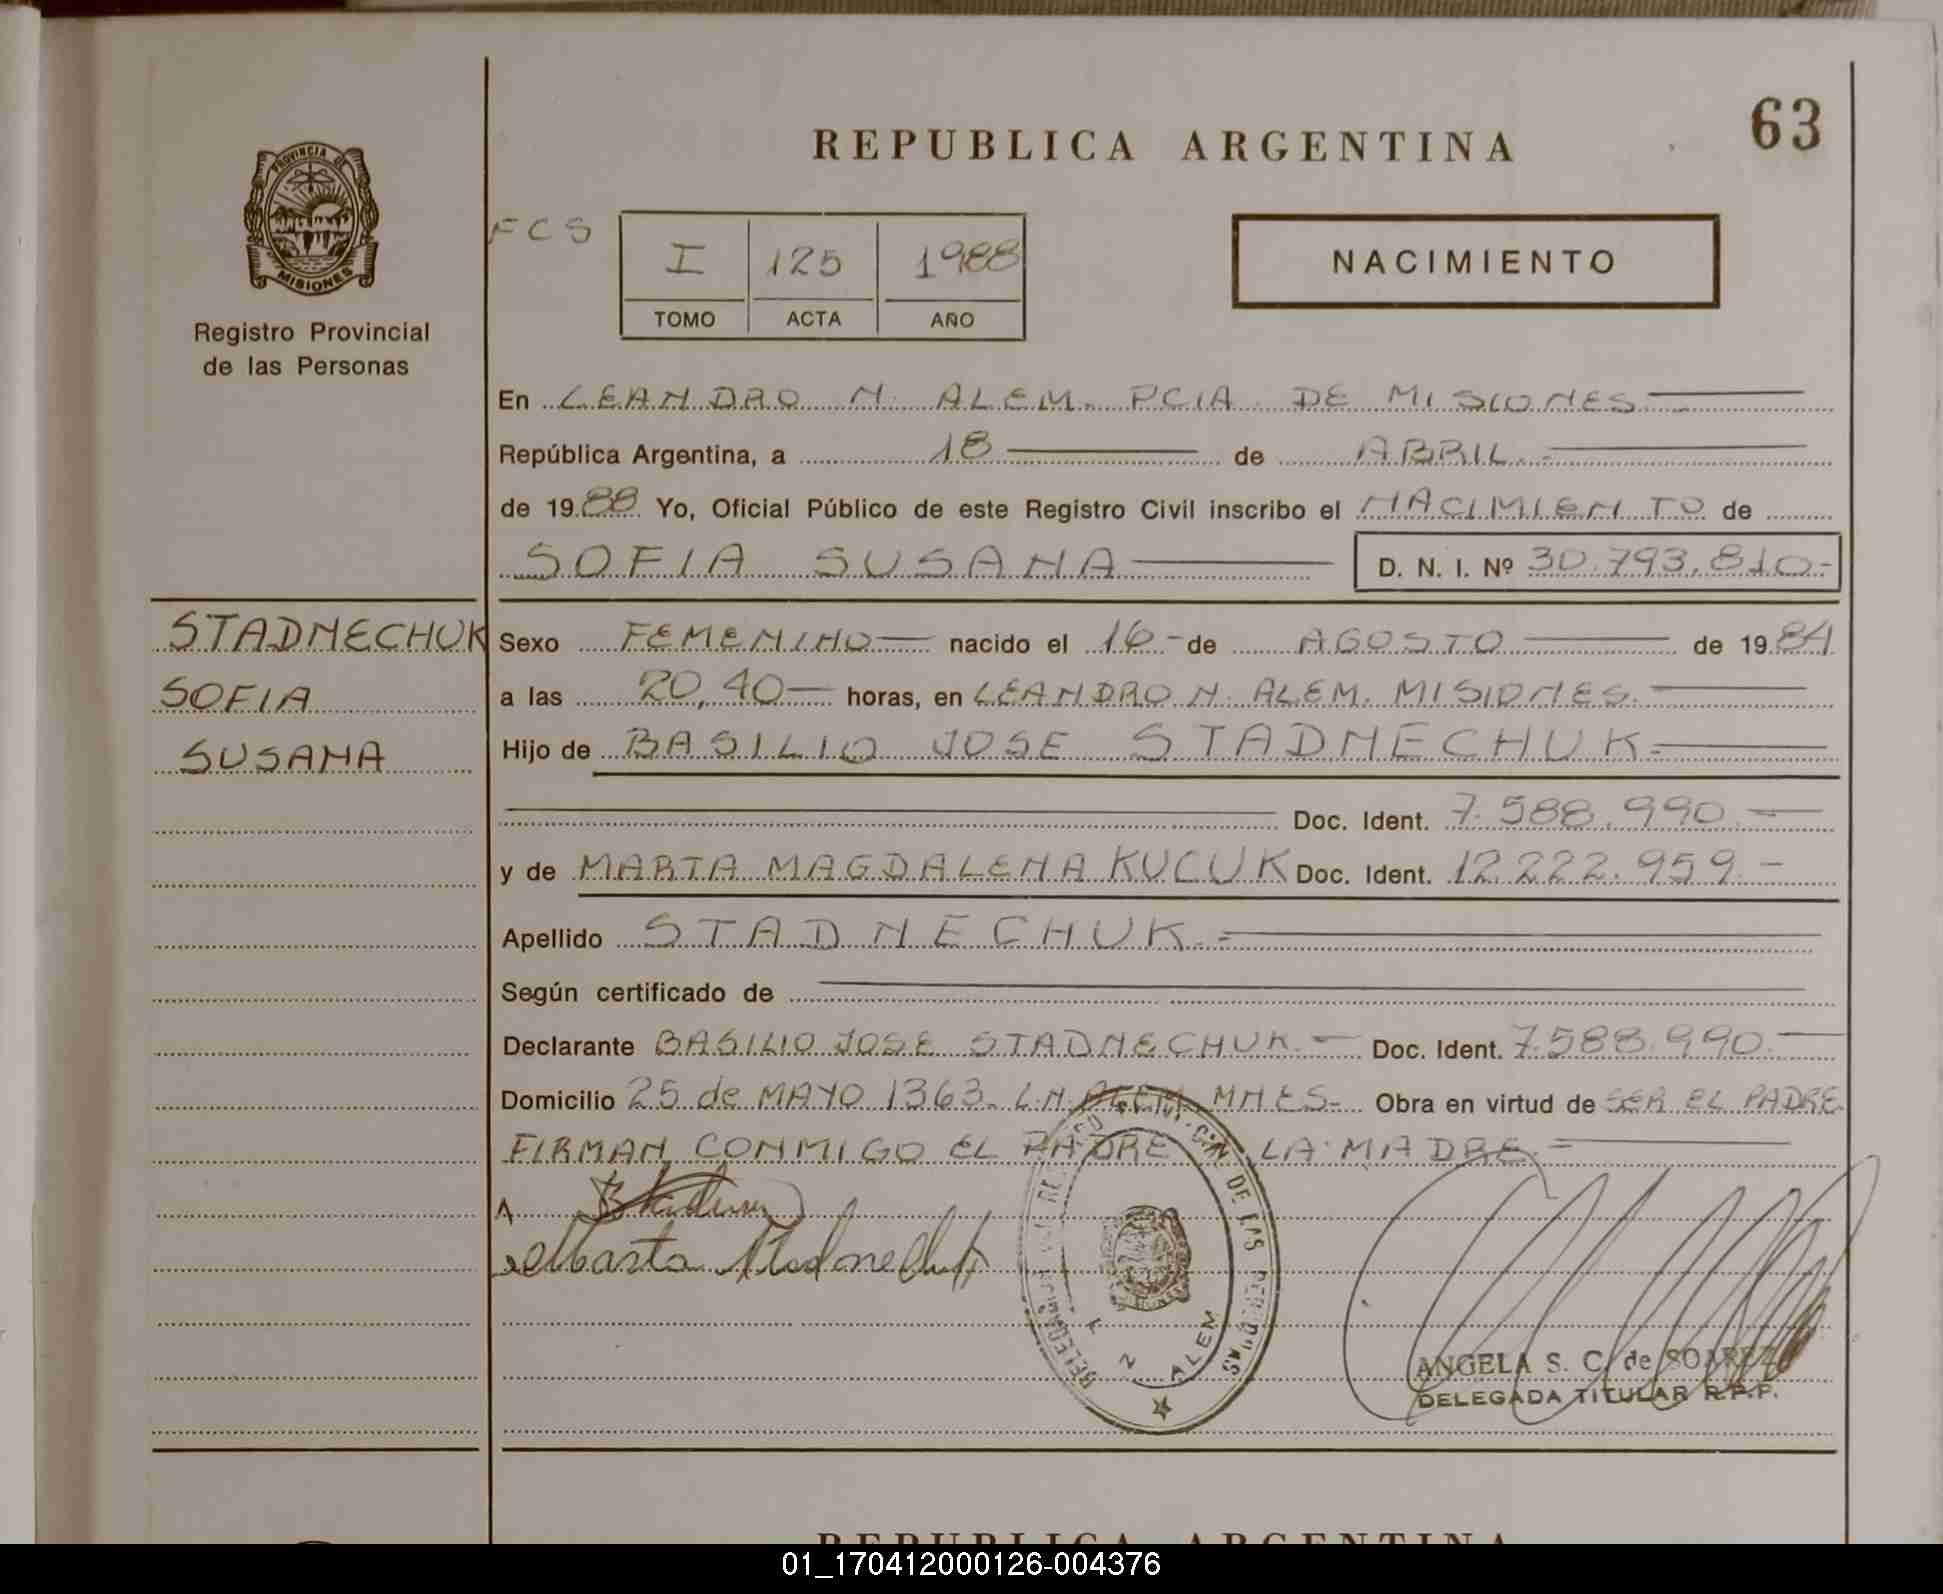 63
REPUBLICA ARGENTINA
PROVINCIA DE
MISIONES
Registro Provincial
de las Personas
FCS
I 125 1988
TOMO ACTA AÑO
NACIMIENTO
En LEANDRO N. ALEM. PCIA. DE MISIONES
República Argentina, a 18 de ABRIL.-
de 1988 Yo, Oficial Público de este Registro Civil inscribo el NACIMIENTO de
SOFIA SUSANA D. N. I. Nº 30.793.810-
STADNECHUK
SOFIA
SUSANA
Sexo FEMENINO nacido el 16- de AGOSTO de 1984
a las 20,40 horas, en LEANDRO N. ALEM. MISIONES.
Hijo de BASILIO JOSE STADNECHUK.-
Doc. Ident. 7.588.990.-
y de MARTA MAGDALENA KUCUK Doc. Ident. 12.222.959.-
Apellido STADNECHUK.-
Según certificado de
Declarante BASILIO JOSE STADNECHUK.- Doc. Ident. 7.588.990.-
Domicilio 25 de MAYO 1363. L.N. ALEM. MNES- Obra en virtud de SER EL PADRE.
FIRMAN CONMIGO EL PADRE LA MADRE.-
Marta Stadnechuk
DE LAS PERSONAS
L N ALEM
ANGELA S. C. de SOAREZ
DELEGADA TITULAR R.P.P.
REPUBLICA ARGENTINA
01_170412000126-004376